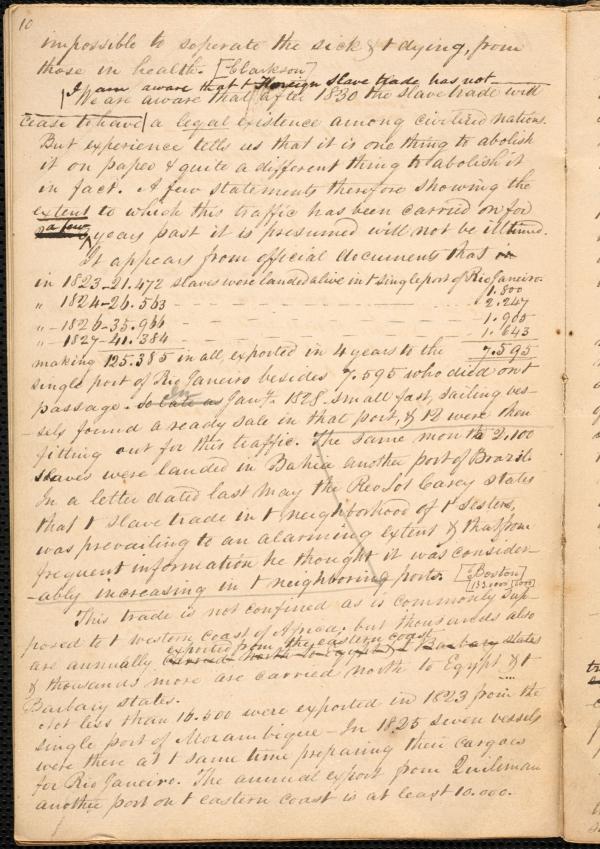 10
impossible to seperate the sick & t dying, from
those in health. [Clarkson]
I am aware that t Foreign slave trade has not
We are aware that after 1830 the slave trade will
cease to have a legal existence among civilized nations.
But experience tells us that it is one thing to abolish
it on paper & quite a different thing to abolish it
in fact. A few statements therefore showing the
extent to which this traffic has been carried on for
a few years past it is presumed will not be illtimed.
It appears from official documents that in
in 1823-21.472 slaves were landed alive in t single port of Rio Janeiro.
" 1824-26.563 - - - - 1.800
2.247
" -1826-35.966 - - - - 1.905
" -1827-41.384 - - - - 1.643
making 125.385 in all exported in 4 years to the 7.595
single port of Rio Janeiro besides 7.595 who died on t
passage. So late as In Jany. 1828. small fast, sailing ves-
-sels found a ready sale in that port, & 12 were then
fitting out for this traffic. The same month 2,100
slaves were landed in Bahia another port of Brazil.
In a letter dated last May the Rev Lot Carey states
that t slave trade in t neighborhood of t Sesters,
was prevailing to an alarming extent & that from
frequent information he thought it was consider-
-ably increasing in t neighboring ports. [Boston]
This trade is not confined as is commonly sup-
posed to t western coast of Africa. but thousands also
exported from the eastern coast
are annually carried north to Egypt & t Barbary states
& thousands more are carried north to Egypt & t
Barbary states.
Not less than 16.500 were exported in 1823 from the
single port of Mozambique - In 1825 seven vessels
were there at t same time preparing their cargoes
for Rio Janeiro. The annual export from Quiliman
another port on t eastern coast is at least 10.000.